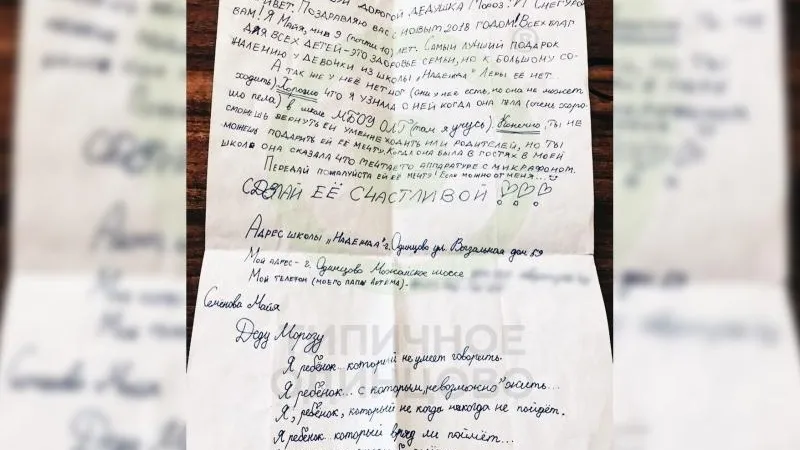 дорогой, Дедушка Мороз! и Снегуроч
Привет. Поздравляю вас с новым 2018 годом! Всех благ
вам! Я Майя, мне 9 (почти 10) лет. Самый лучший подарок
для всех детей-это здоровье семьи, но к большому со-
жалению у девочки из школы „Надежда" Лены её нет.
А так же у неё нет ног (они у нее есть, но она не может
ходить). Хорошо что я узнала о ней когда она пела (очень хоро-
шо пела) в школе МБОУ ОЛГ (там я учусь). Конечно, ты не
сможешь вернуть ей умение ходить или родителей, но ты
можешь подарить ей её мечту. Когда она была в гостях в моей
школе она сказала что мечтает о аппаратуре с микрафоном.
Передай пожалуйста ей её мечту! Если можно от меня...
Сделай её счастливой !!!
Адрес школы „Надежда" г. Одинцово ул. Вокзальная дом 59
Мой адрес- г. Одинцово Можайское шоссе
Мой телефон (моего папы Артема).
Семенова Майя
Деду Морозу
ТИПИЧНОЕ
ОДИНЦОВО
Я ребёнок... который не умеет говорить.
Я ребёнок... с которым „невозможно" жить...
Я, ребёнок, который не когда никогда не пойдёт.
Я ребёнок... который вряд ли поймёт...